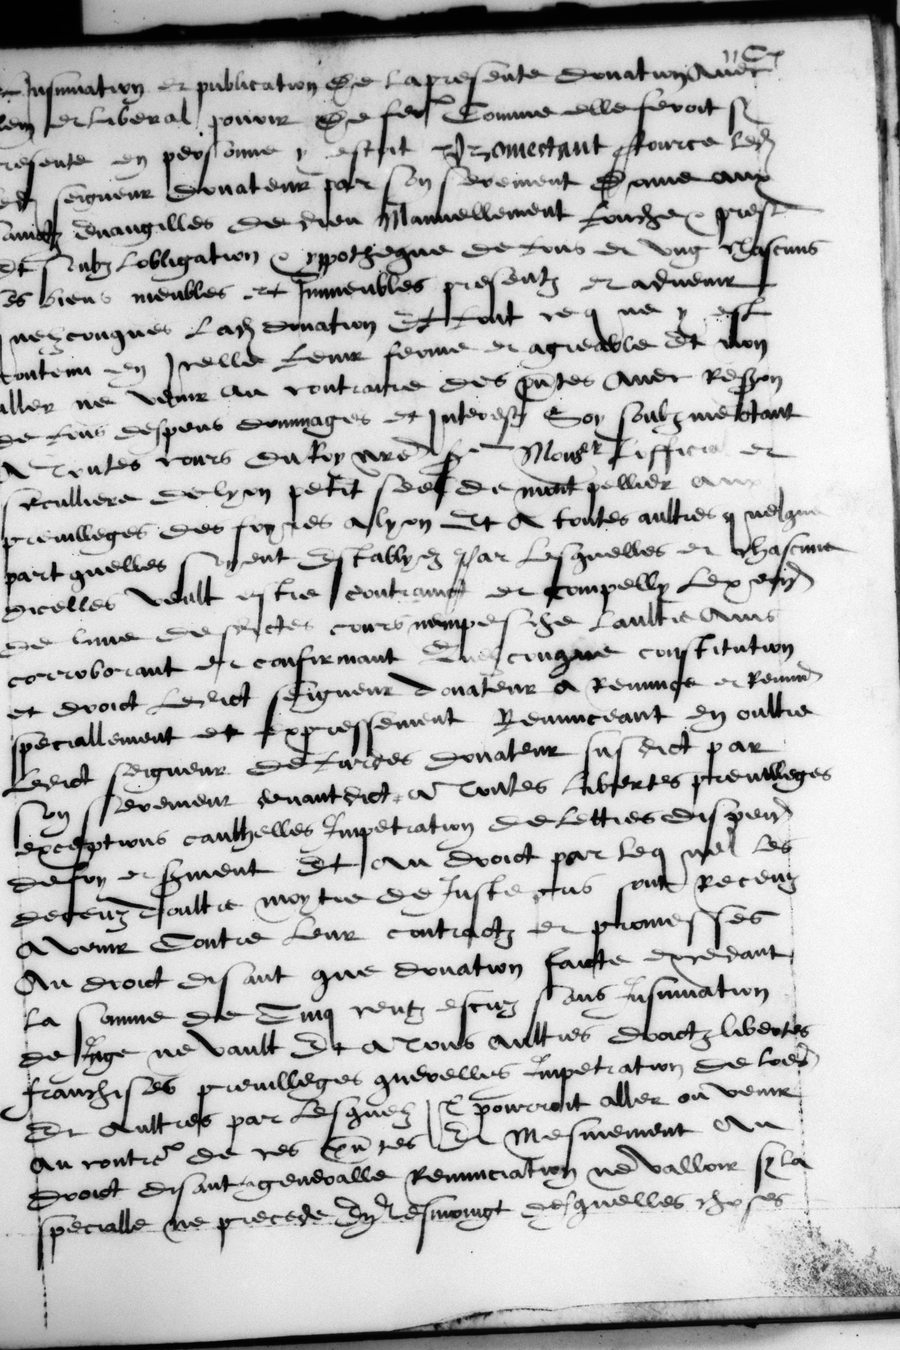 Insinuation et publication de la presente donation avec
et liberal pouvoir de fere comme elle feroit sy
presente en personne y estoit Promectant oultre led
seigneur donateur par son serement donne aux
sainctz evangilles de dieu manuellement touchez prest
et soubz lobligation & yppotheque de tous et ung chascuns
ses biens meubles et Immeubles presentz et advenir
quelzconques lad donation et tout ce q ne y est
contenu en Icelle tenir ferme et agreable et non
aller ne venir au contraire des pntes avec Reffzon
de tous despens dommages et Interestz Soy soubzmectant
A toutes cours du Roy nre sr Monsr Lofficial et
seculliere de lyon petit seel de montpellier aux
previlleges des foyres a lyon Et a toutes aultres quelque
part quelles soyent establyez Par lesquelles et chascune
dicelles veult estre contrainct et compelly
de lune desdictes cours nempesche laultre Ains
corroborant et confirmant quelconque constitution
et droict ledict seigneur donateur a Renunce et Renund
speciallement et expressement Renunceant en oultre
ledict seigneur de donateur susdict par
son serement devant dict a toutes libertes previlleges
exceptions cauthelles Impetration de lettres dispen
de foy et serment Et au droict par leq nel les
deceuz doultre moytie de Juste pris sont Receuz
a venir contre leur contractz et promesses
Au droict disant que donation faicte excedant
la somme de cinq centz escuz sans Insinuation
de Juge ne vault Et a tous aultres droictz libertes
franchises previlleges querelles Impetration de loers
Et aultres par lesquelz Il pourroit aller ou venir
au contre de ces pntes Et mesmement Au
droict disant generalle Renunciation ne valloir sy la
specialle ne precede En tesmoingt desquelles choses